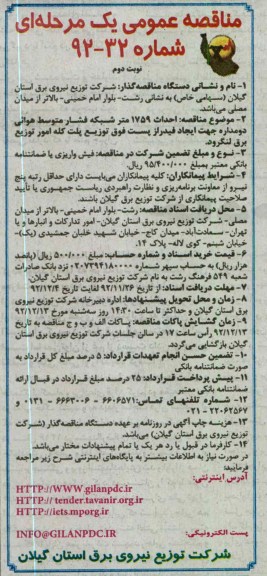 مناقصه عمومی یک مرحله‌ای
شماره ۳۲-۹۲
نوبت دوم
۱- نام و نشانی دستگاه مناقصه‌گذار: شرکت توزیع نیروی برق استان
گیلان (سهامی خاص) به نشانی رشت- بلوار امام خمینی- بالاتر از میدان
مصلی می‌باشد.
۲- موضوع مناقصه: احداث ۱۷۵۹ متر شبکه فشار متوسط هوائی
دومداره جهت ایجاد فیدراز پست فوق توزیع پلت کله امور توزیع
برق لنگرود.
۳- نوع و مبلغ تضمین شرکت در مناقصه: فیش واریزی یا ضمانتنامه
بانکی معتبر بمبلغ ۹۵/۴۰۰/۰۰۰ ریال
۴- شرایط پیمانکاران: کلیه پیمانکاران می‌بایست دارای حداقل رتبه پنج
نیرو از معاونت برنامه‌ریزی و نظارت راهبردی ریاست جمهوری یا تأیید
صلاحیت پیمانکاری از شرکت توزیع برق گیلان باشند.
۵- محل دریافت اسناد مناقصه: رشت- بلوار امام خمینی- بالاتر از میدان
مصلی- شرکت توزیع نیروی برق استان گیلان- امور تدارکات و انبارها و یا
تهران- سعادت‌آباد- میدان کاج- خیابان شهید خلبان جمشیدی (یک)-
خیابان شبنم- کوی لاله- پلاک ۱۴.
۶- قیمت خرید اسناد و شماره حساب: مبلغ ۵۰۰/۰۰۰ ریال (پانصد
هزار ریال) به حساب سپهر شماره ۰۲۰۷۲۹۴۱۸۰۰۰۰ نزد بانک صادرات
شعبه ۵۴۹ فرهنگ رشت به نام شرکت توزیع نیروی برق استان گیلان.
۷- مهلت دریافت اسناد: از تاریخ ۹۲/۱۱/۲۶ لغایت تاریخ ۹۲/۱۲/۴
۸- زمان و محل تحویل پیشنهادها: اداره دبیرخانه شرکت توزیع نیروی
برق استان گیلان و حداکثر تا ساعت ۱۴:۳۰ روز سه‌شنبه مورخ ۹۲/۱۲/۱۳
۹- زمان گشایش پاکات مناقصه: پاکات الف و ب و ج مناقصه به تاریخ
۹۲/۱۲/۱۴ رأس ساعت ۱۷ در سالن جلسات شرکت توزیع نیروی برق استان
گیلان بازگشایی می‌گردد.
۱۰- تضمین حسن انجام تعهدات قرارداد: ۵ درصد مبلغ کل قرارداد به
صورت ضمانتنامه بانکی
۱۱- پیش پرداخت قرارداد: ۲۵ درصد مبلغ قرارداد در قبال ارائه
ضمانتنامه بانکی معتبر
۱۲- شماره تلفنهای تماس: ۶۶۰۶۵۷۱ - ۶۶۶۳۰۰۶ - ۰۱۳۱ و
۲۲۰۶۲۵۶۷ - ۰۲۱
۱۳- هزینه چاپ آگهی در روزنامه بر عهده دستگاه مناقصه‌گذار (شرکت
توزیع نیروی برق استان گیلان) می‌باشد.
۱۴- کارفرما در قبول یا رد هر یک یا تمام پیشنهادات مختار می‌باشد.
در صورت نیاز به اطلاعات بیشتر به پایگاه‌های اینترنتی شرح زیر مراجعه
فرمایید:
آدرس اینترنتی:
HTTP://WWW.gilanpdc.ir
HTTP:// tender.tavanir.org.ir
HTTP://iets.mporg.ir
پست الکترونیکی: INFO@GILANPDC.IR
شرکت توزیع نیروی برق استان گیلان